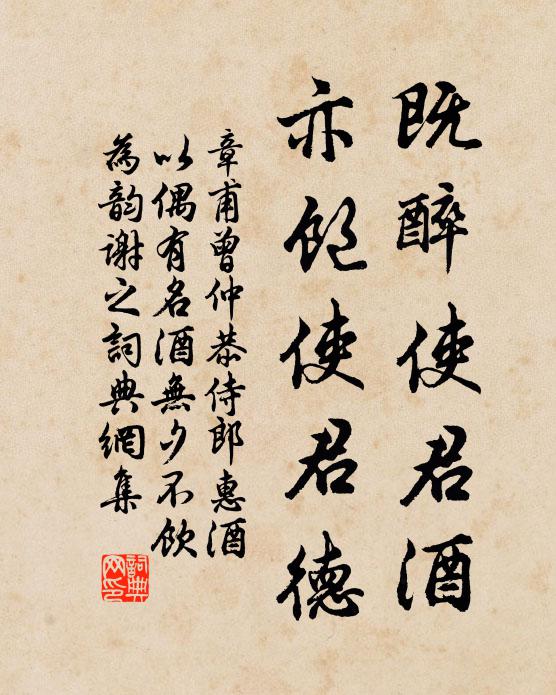 既醉使君酒
亦飽使君德
章甫曾仲恭侍郎惠酒
以偶有名酒無夕不飲
為韵謝之詞典網集
詞典网印